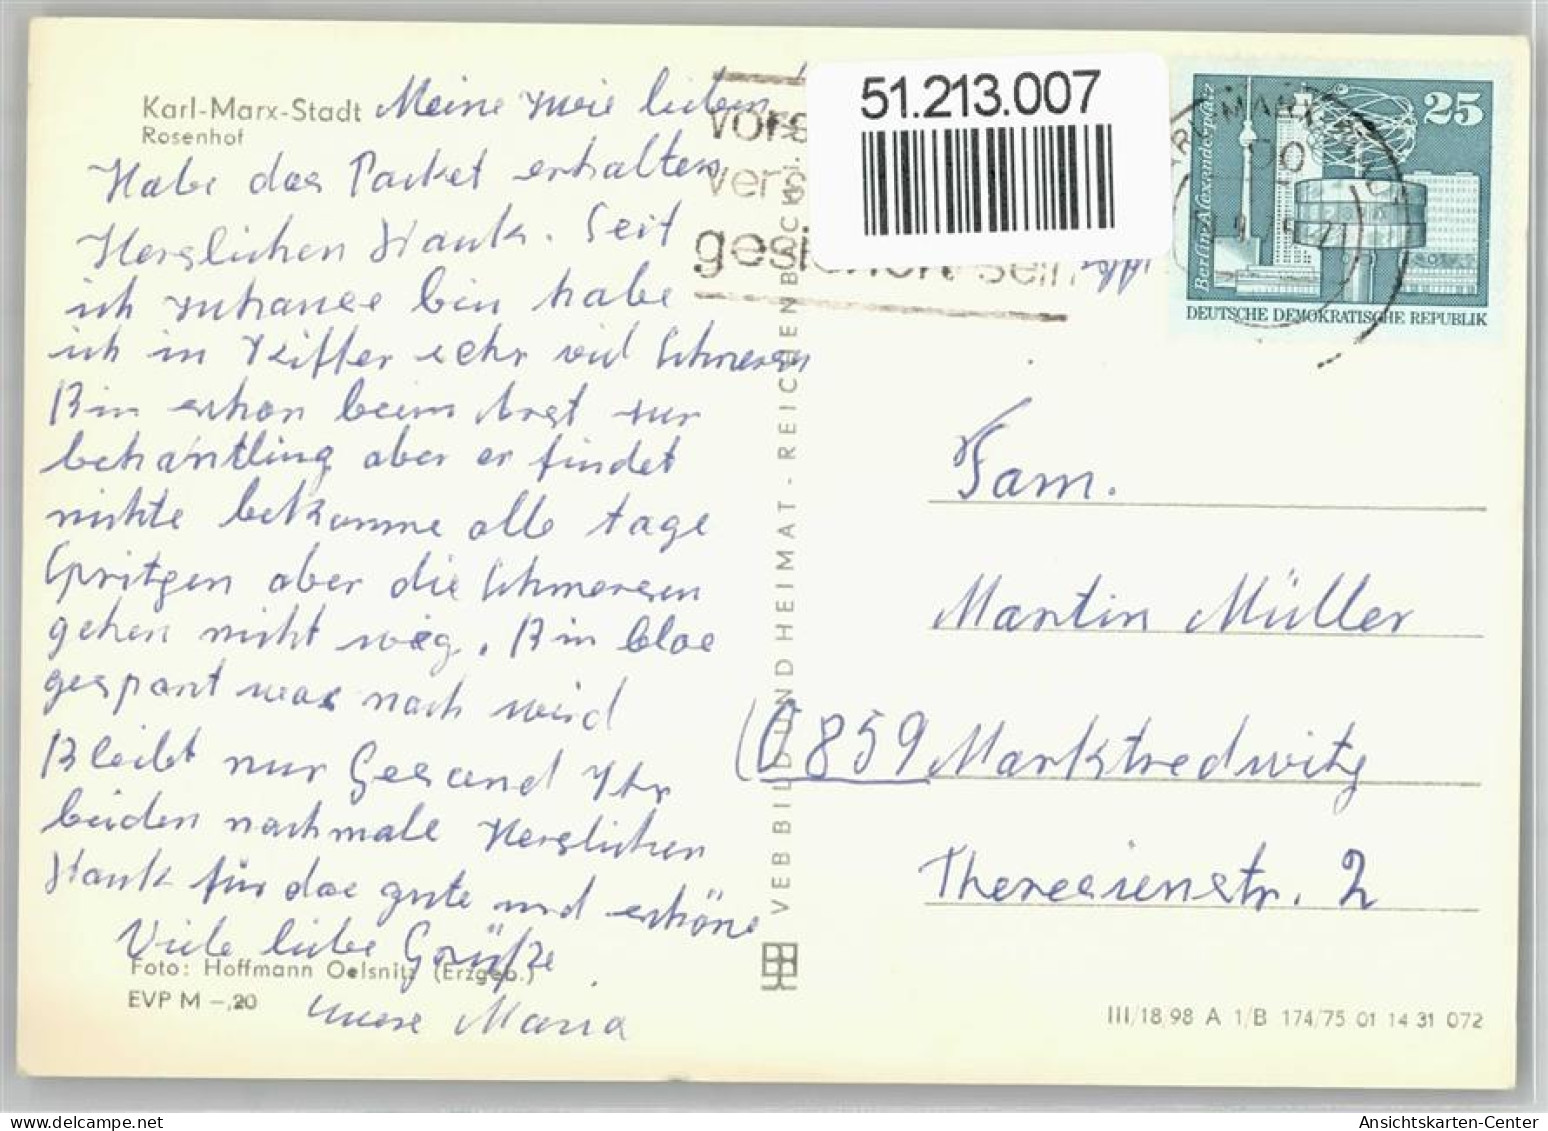 Karl-Marx-Stadt
Rosenhof
Meine zwei lieben
Habe das Packet erhalten
Herzlichen Dank. Seit
ich zuhause bin habe
ich in Hifter sehr viel Schmerzen
Bin schon beim Arzt zur
behantling aber er findet
nichts bekomme alle tage
Spritzen aber die Schmerzen
gehen nicht weg. Bin blos
gespant was noch wird
Bleibt nur Gesund Ihr
beiden nochmals Herzlichen
Dank für das gute und schöne
Viele liebe Grüße
Foto: Hoffmann Oelsnitz (Erzgeb.)
EVP M –,20
eure Maria
VEB BILD UND HEIMAT · REICHENBACH
51.213.007
gesichert sein
25
Berlin-Alexanderplatz
DEUTSCHE DEMOKRATISCHE REPUBLIK
Fam.
Martin Müller
(D 859 Marktredwitz
Theresienstr. 2
III/18/98 A 1/B 174/75 01 14 31 072
Ansichtskarten-Center